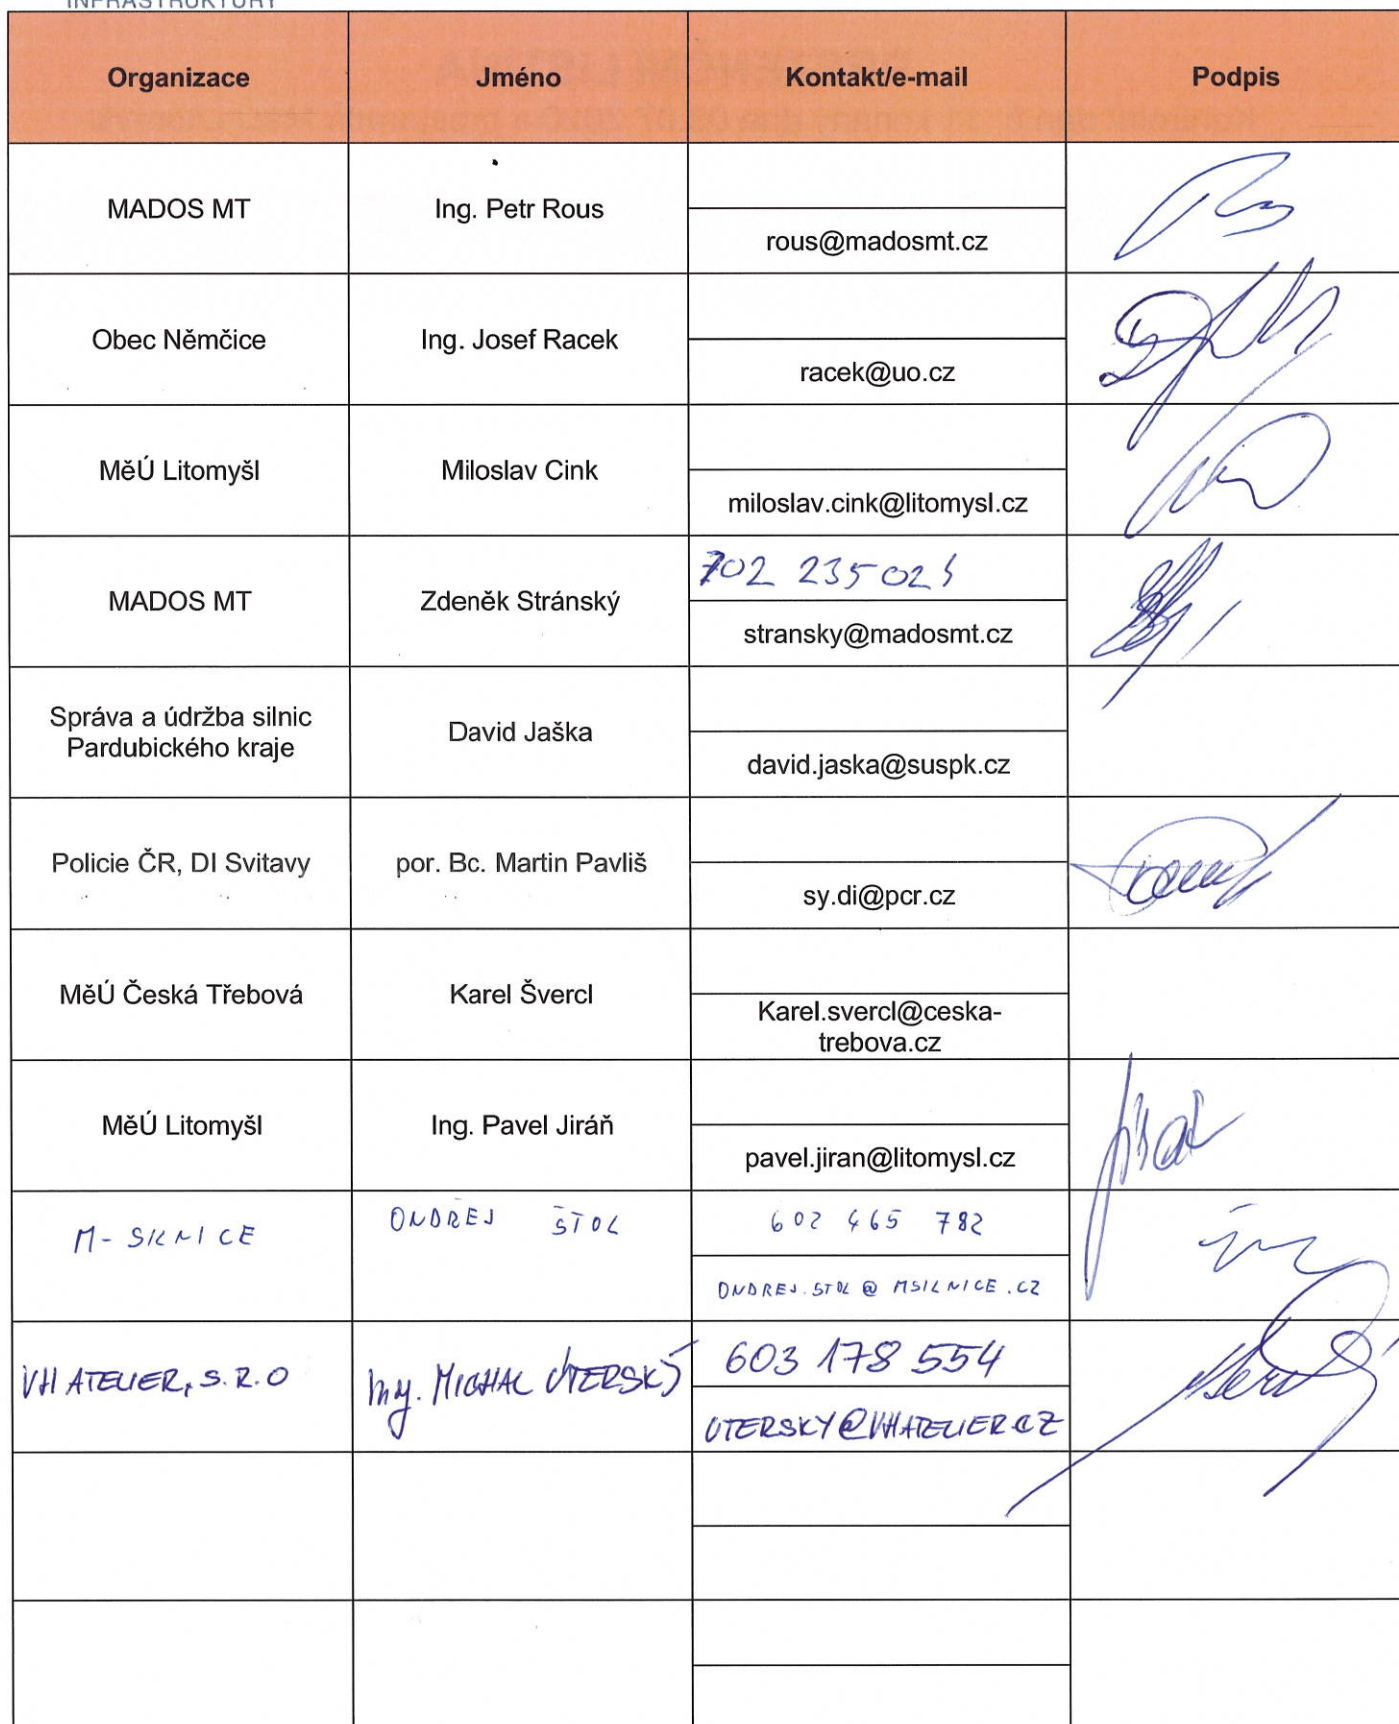 INFRASTRUKTURY
Organizace Jméno Kontakt/e-mail Podpis
MADOS MT Ing. Petr Rous
rous@madosmt.cz
Obec Němčice Ing. Josef Racek
racek@uo.cz
MěÚ Litomyšl Miloslav Cink
miloslav.cink@litomysl.cz
702 235 021
MADOS MT Zdeněk Stránský
stransky@madosmt.cz
Správa a údržba silnic
Pardubického kraje David Jaška
david.jaska@suspk.cz
Policie ČR, DI Svitavy por. Bc. Martin Pavliš
sy.di@pcr.cz
MěÚ Česká Třebová Karel Švercl
Karel.svercl@ceska-
trebova.cz
MěÚ Litomyšl Ing. Pavel Jiráň
pavel.jiran@litomysl.cz
M-SILNICE ONDŘEJ ŠTOL 602 465 782
ONDREJ.STOL@MSILNICE.CZ
VH ATELIER, S.R.O Ing. MICHAL ÚTERSKÝ 603 178 554
UTERSKY@VHATELIER.CZ